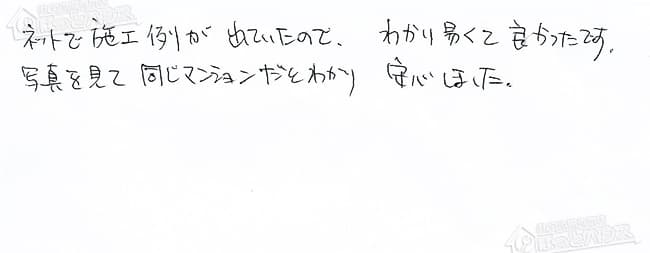 ネットで施工例が出ていたので、わかり易くて良かったです。
写真を見て同じマンションだとわかり安心しました。